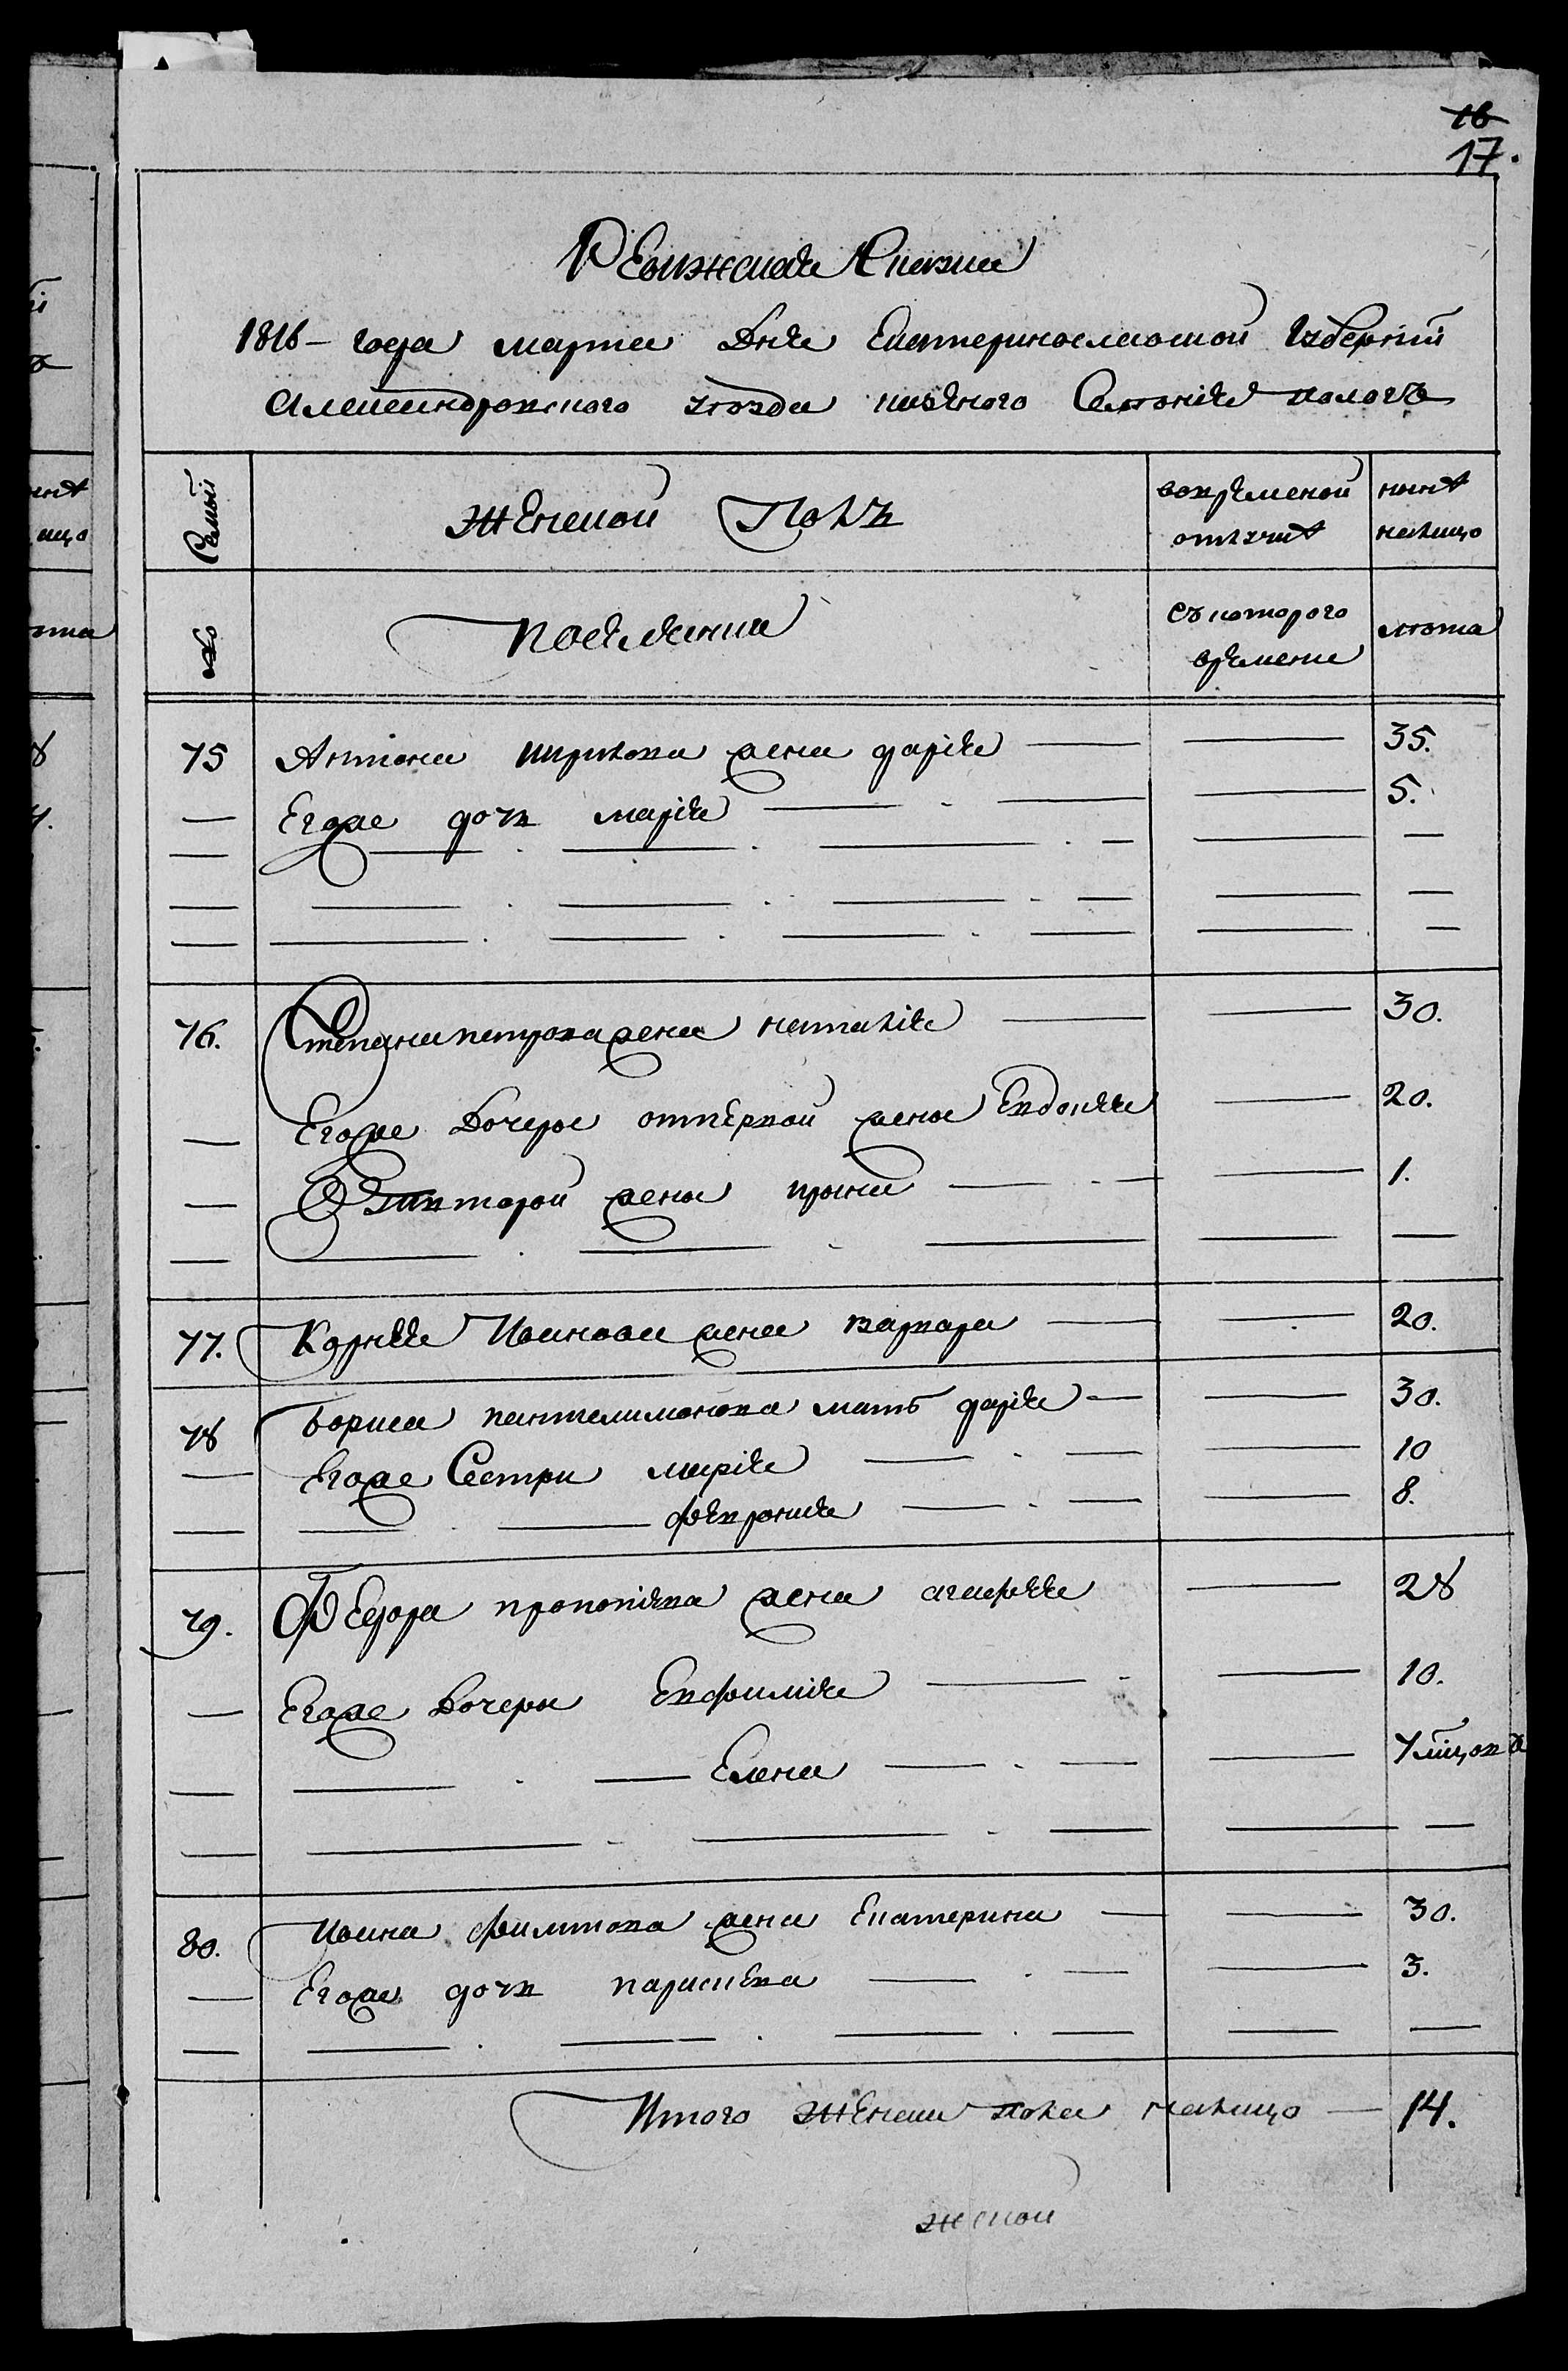 16
17.
Ревижская Скаска
1816 – года марта Дня Екатеринославской Губерній
Александровского уѣзда казѣного Селенія пологъ
Семьи
Женской Полъ
вовремѣной отлучкѣ
нынѣ налицо
№
поселянина
съкоторого времени
лѣта
75 Антона кирилова жена дарія — — 35.
— Егоже дочь марія — — 5.
76. Степана петрова жена наталія — — 30.
— Егоже Дочери отпервой жены Евдокія — 20.
— отвторой жены ирина — — 1.
77. Корнѣя Иванова жена варвара — — 20.
78 Бориса пантелимонова мать дарія — — 30.
— Егоже Сестри марія — — 10
— — февронія — — 8.
79. Федора прокопієва жена агафія — 28
— Егоже Дочери Евфимія — — 10.
— — Елена — — 7 мѣцовъ
80. Ивана филипова жена Екатерина — — 30.
— Егоже дочь парасковя — — 3.
Итого Женска пола налицо — 14.
жской